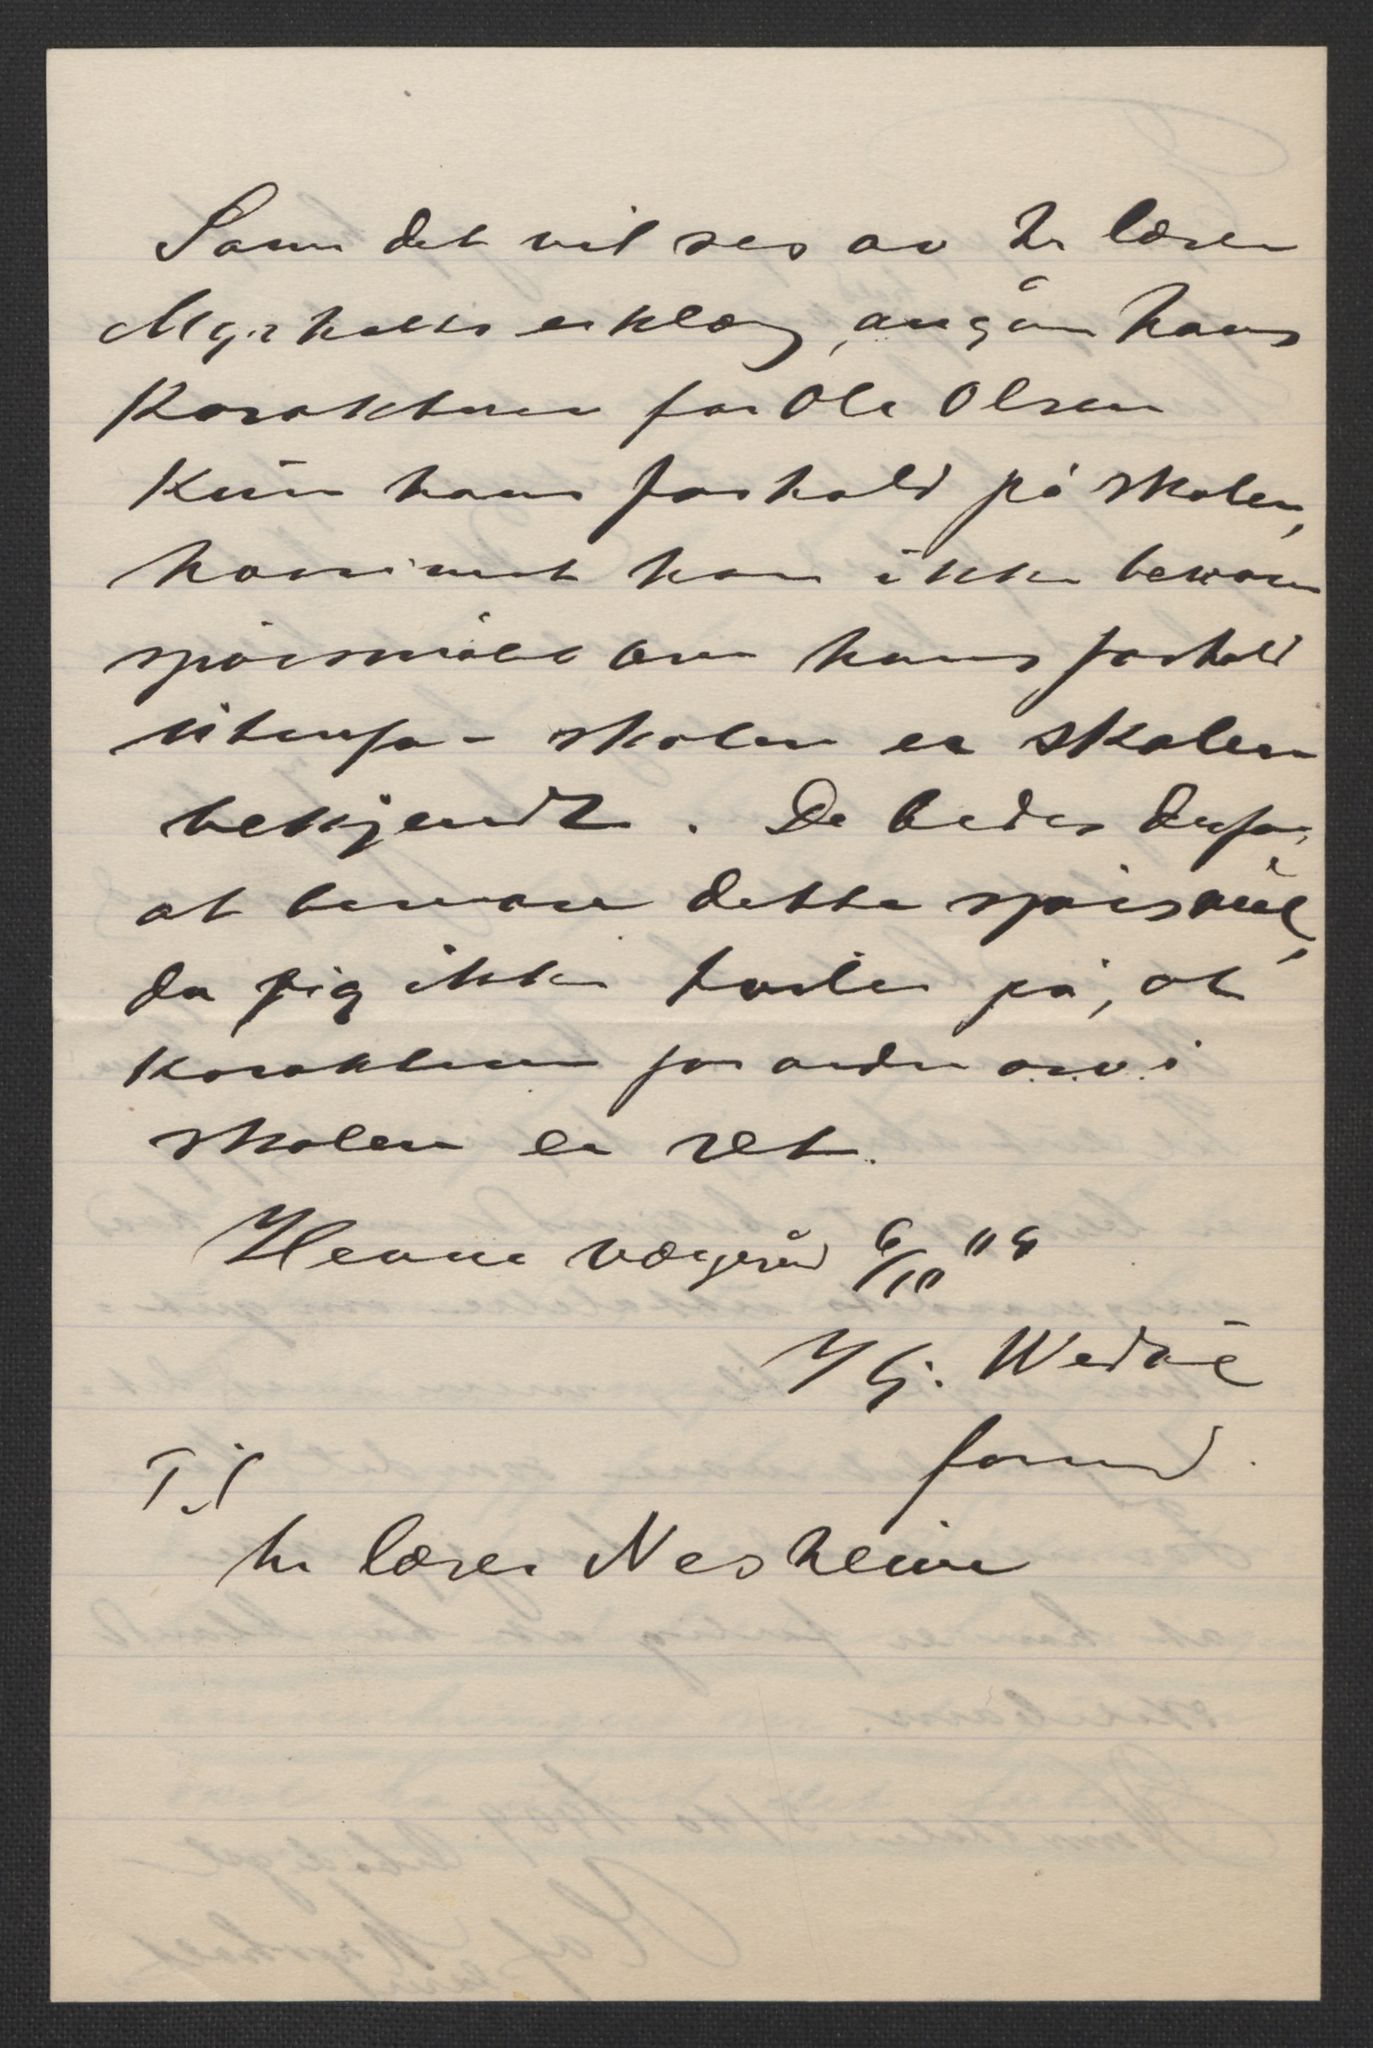 Som det vil ses av hr lærer
Myrholts erklæring, angår hans
Karakterer for Ole Olsen
Kun hans forhold på skolen,
hvorimot han ikke besvarer
spørsmålet om hans forhold
utenfor skolen er skolen
bekjendt. De bedes derfor
at besvare dette spørsmål,
da jeg ikke tviler på, at
Karakteren for orden o.s.v. i
skolen er ret.
Herøe vergeråd 6/10 09
H Gj. Wedøe
formd.
Til
hr lærer Nesheim